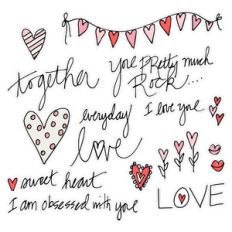 together
you PRetty much
Rock....
everyday
love
I love you
sweet heart
I am obsessed with you
LOVE